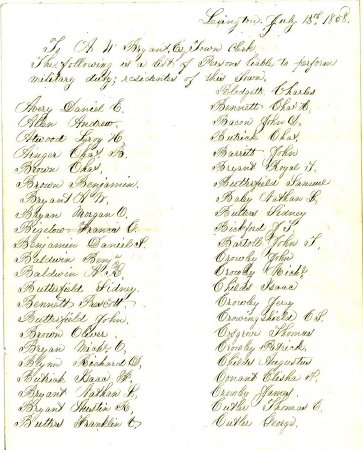 Lexington July 13th 1868.
To A W Bryant, Esq Town Clerk.
The following is a List of Persons liable to perform
military duty; residentes of this Town.
Avery Daniel E.
Allen Andrew.
Atwood Leroy H.
Ainger Chas. B.
Brown Chas.
Brown Benjamin.
Bryant A W.
Bryan Morgan O.
Bigelow Francis C.
Benjamin Daniel S.
Baldwin Benj n
Baldwin A K.
Butterfield Sidney.
Bennett Prescott
Butterfield John.
Brown Oliver.
Bryan Mich. O.
Blynn Richard D.
Butrick Isaac W.
Bryant Nathan L.
Bryant Austin R.
Butters Franklin C
Blodgett Charles
Bennett Chas. H.
Bacon John O.
Butrick Chas.
Barritt John
Bryant Royal T.
Butterfield Samuel
Baby Nathan L.
Butters Sidney
Bickford J. S.
Bartoll John T.
Crowly John
Crowly Mich l.
Childs Isaac
Crowly Jery
Crowinshields C S.
Cosgrove Thomas
Crosby Patrick.
Childs Augustus
Conant Elisha P.
Crowly James
Cutler Thomas C.
Cutler George.